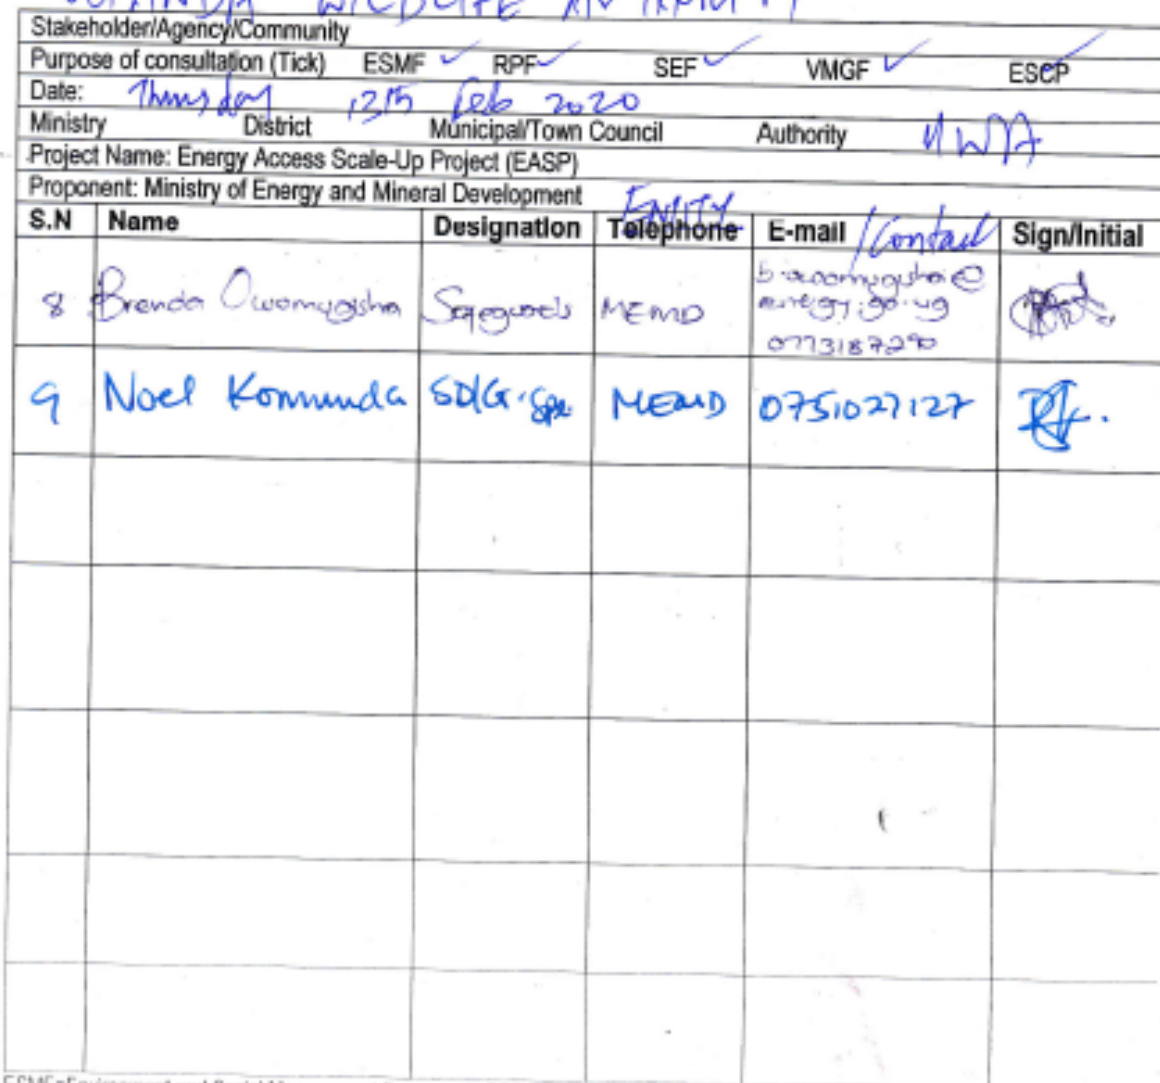 UGANDA WILDLIFE AUTHORITY
Stakeholder/Agency/Community
Purpose of consultation (Tick) ESMF ✓ RPF ✓ SEF ✓ VMGF ✓ ESCP ✓
Date: Thursday 13th Feb 2020
Ministry District Municipal/Town Council Authority UWA
Project Name: Energy Access Scale-Up Project (EASP)
Proponent: Ministry of Energy and Mineral Development
ENTITY
S.N Name Designation Telephone E-mail /Contact Sign/Initial
8 Brenda Owomugisha Safeguards MEMD
energy.go.ug
0773187290
9 Noel Komunda SD/Gr. Spe. MEMD 0751027127